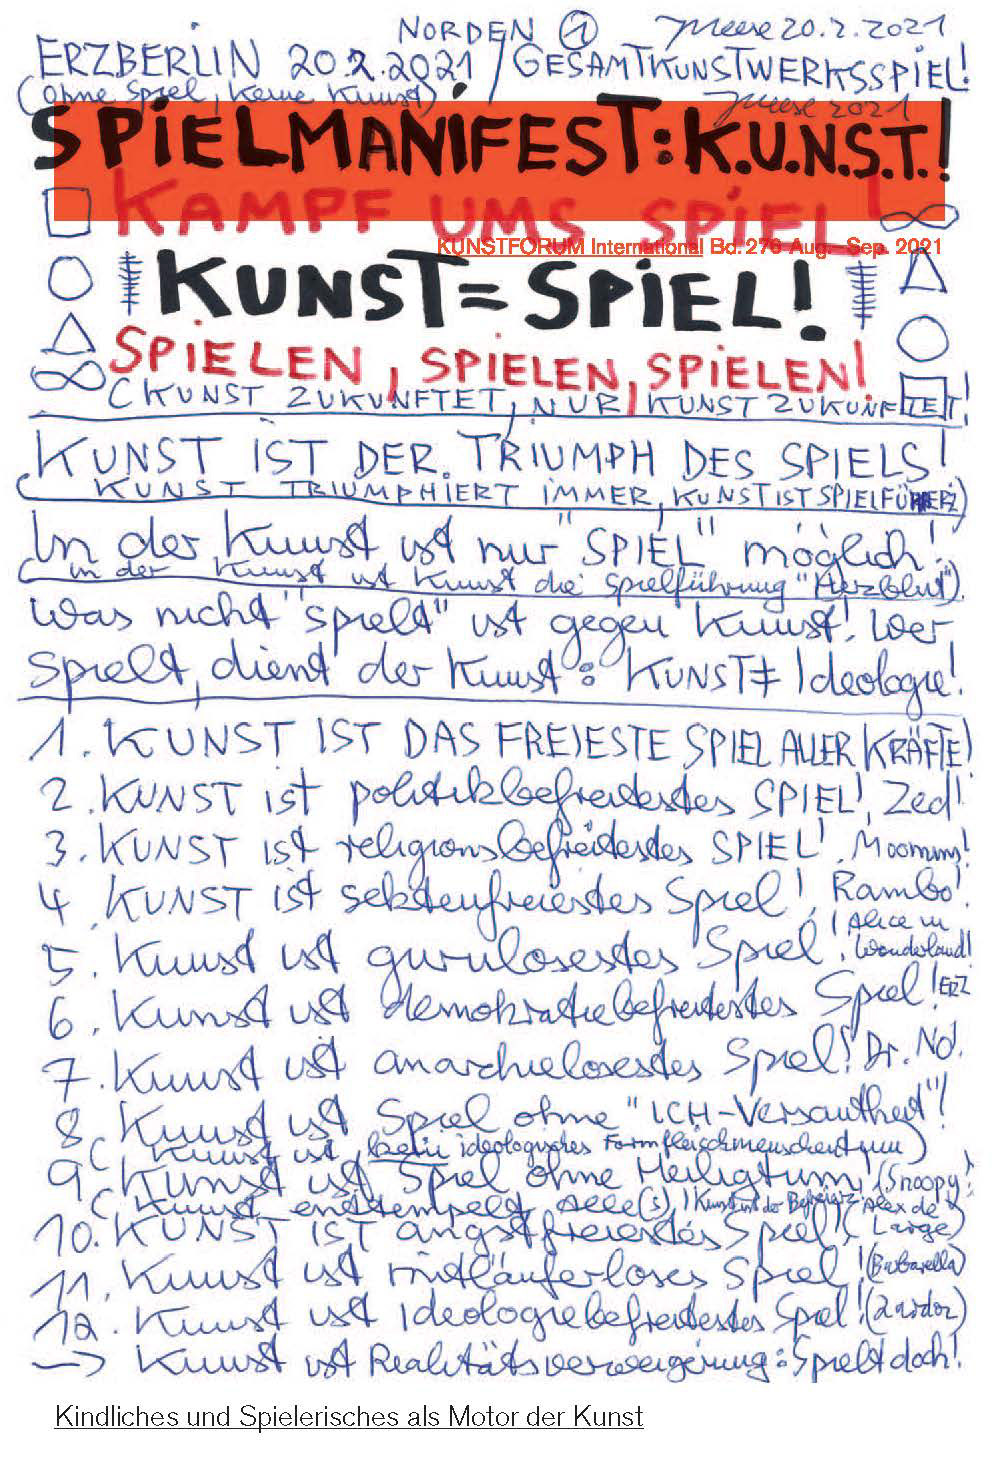 NORDEN ① Meese 20.2.2021
ERZBERLIN 20.2.2021 / GESAMTKUNSTWERKSSPIEL!
(ohne Spiel, keine Kunst) Meese 2021
SPIELMANIFEST: K.U.N.S.T.!
KAMPF UMS SPIEL!
KUNSTFORUM International Bd. 276 Aug.- Sep. 2021
KUNST = SPIEL!
SPIELEN, SPIELEN, SPIELEN!
(KUNST ZUKUNFTET, NUR KUNST ZUKUNFTET!
KUNST IST DER TRIUMPH DES SPIELS!
(KUNST TRIUMPHIERT IMMER, KUNST IST SPIELFÜHRERZ)
In der Kunst ist nur "SPIEL" möglich!
(in der Kunst ist Kunst die Spielführung "Herzblut").
Was nicht "spielt" ist gegen Kunst! Wer
Spielt, dient der Kunst: KUNST ≠ Ideologie!
1. KUNST IST DAS FREIESTE SPIEL ALLER KRÄFTE!
2. KUNST ist politikbefreitestes SPIEL!, Zed!
3. KUNST ist religionsbefreitestes SPIEL!, Moomins!
4. KUNST ist sektenfreiestes Spiel!, Rambo!
5. Kunst ist gurulosestes Spiel! (Alice in Wonderland!
6. Kunst ist demokratiebefreitestes Spiel! ERZ
7. Kunst ist anarchielosestes Spiel! Dr. No.
8. Kunst ist Spiel ohne "ICH-Versautheit"!
(Kunst ist kein ideologisches Formfleischmenschentum)
9. Kunst ist Spiel ohne Heiligtum! (Snoopy!)
(Kunst enttempelt alle(s), Kunst ist der
10. KUNST IST angstfreiestes Spiel! (Alex de Large)
11. Kunst ist mitläuferloses Spiel! (Barbarella)
12. Kunst ist Ideologiebefreitestes Spiel! (Zardoz)
→ Kunst ist Realitätsverweigerung: Spielt doch!
Kindliches und Spielerisches als Motor der Kunst